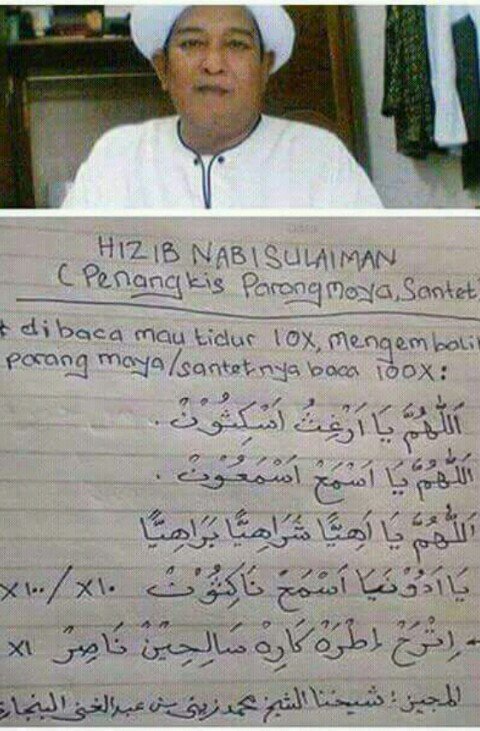 HIZIB NABI SULAIMAN
(Penangkis Parangmaya, Santet)
* dibaca mau tidur 10X, mengembali
parang maya/santetnya baca 100X:
اَللّٰهُمَّ يَا اَرْغِثُ اَسْكِثُوْنْ .
اَللّٰهُمَّ يَا اَسْمَعْ اَسْمَعُوْنْ .
اَللّٰهُمَّ يَا اَهِيًّا شَرَاهِيًّا بَرَاهِيًّا
يَا اَدُوْنَيَا اَسْمَخْ نَاكِثُوْنْ x١٠ / x١٠٠
اِتْرَخْ اِطْرَهْ كَارِهْ سَالِحِيْنْ نَاصِرْ x١
المجيز : شيخنا الشيخ محمد زيني بن عبد الغني البنجار